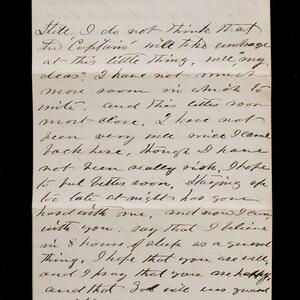 Still I do not think that
the "Captain" will take umbrage
at this little thing, will "my
dear." I have not much
more room in which to
write, and this letter soon
must close, I have not
been very well since I came
back here, though I have
not been really sick, I hope
to feel better soon, Staying up
too late at nights has gone
hard with me, and now I can,
with you, say that I believe
in 8 hours of sleep as a good
thing, I hope that you are well,
and I pray that you are happy,
and that God will ever guard